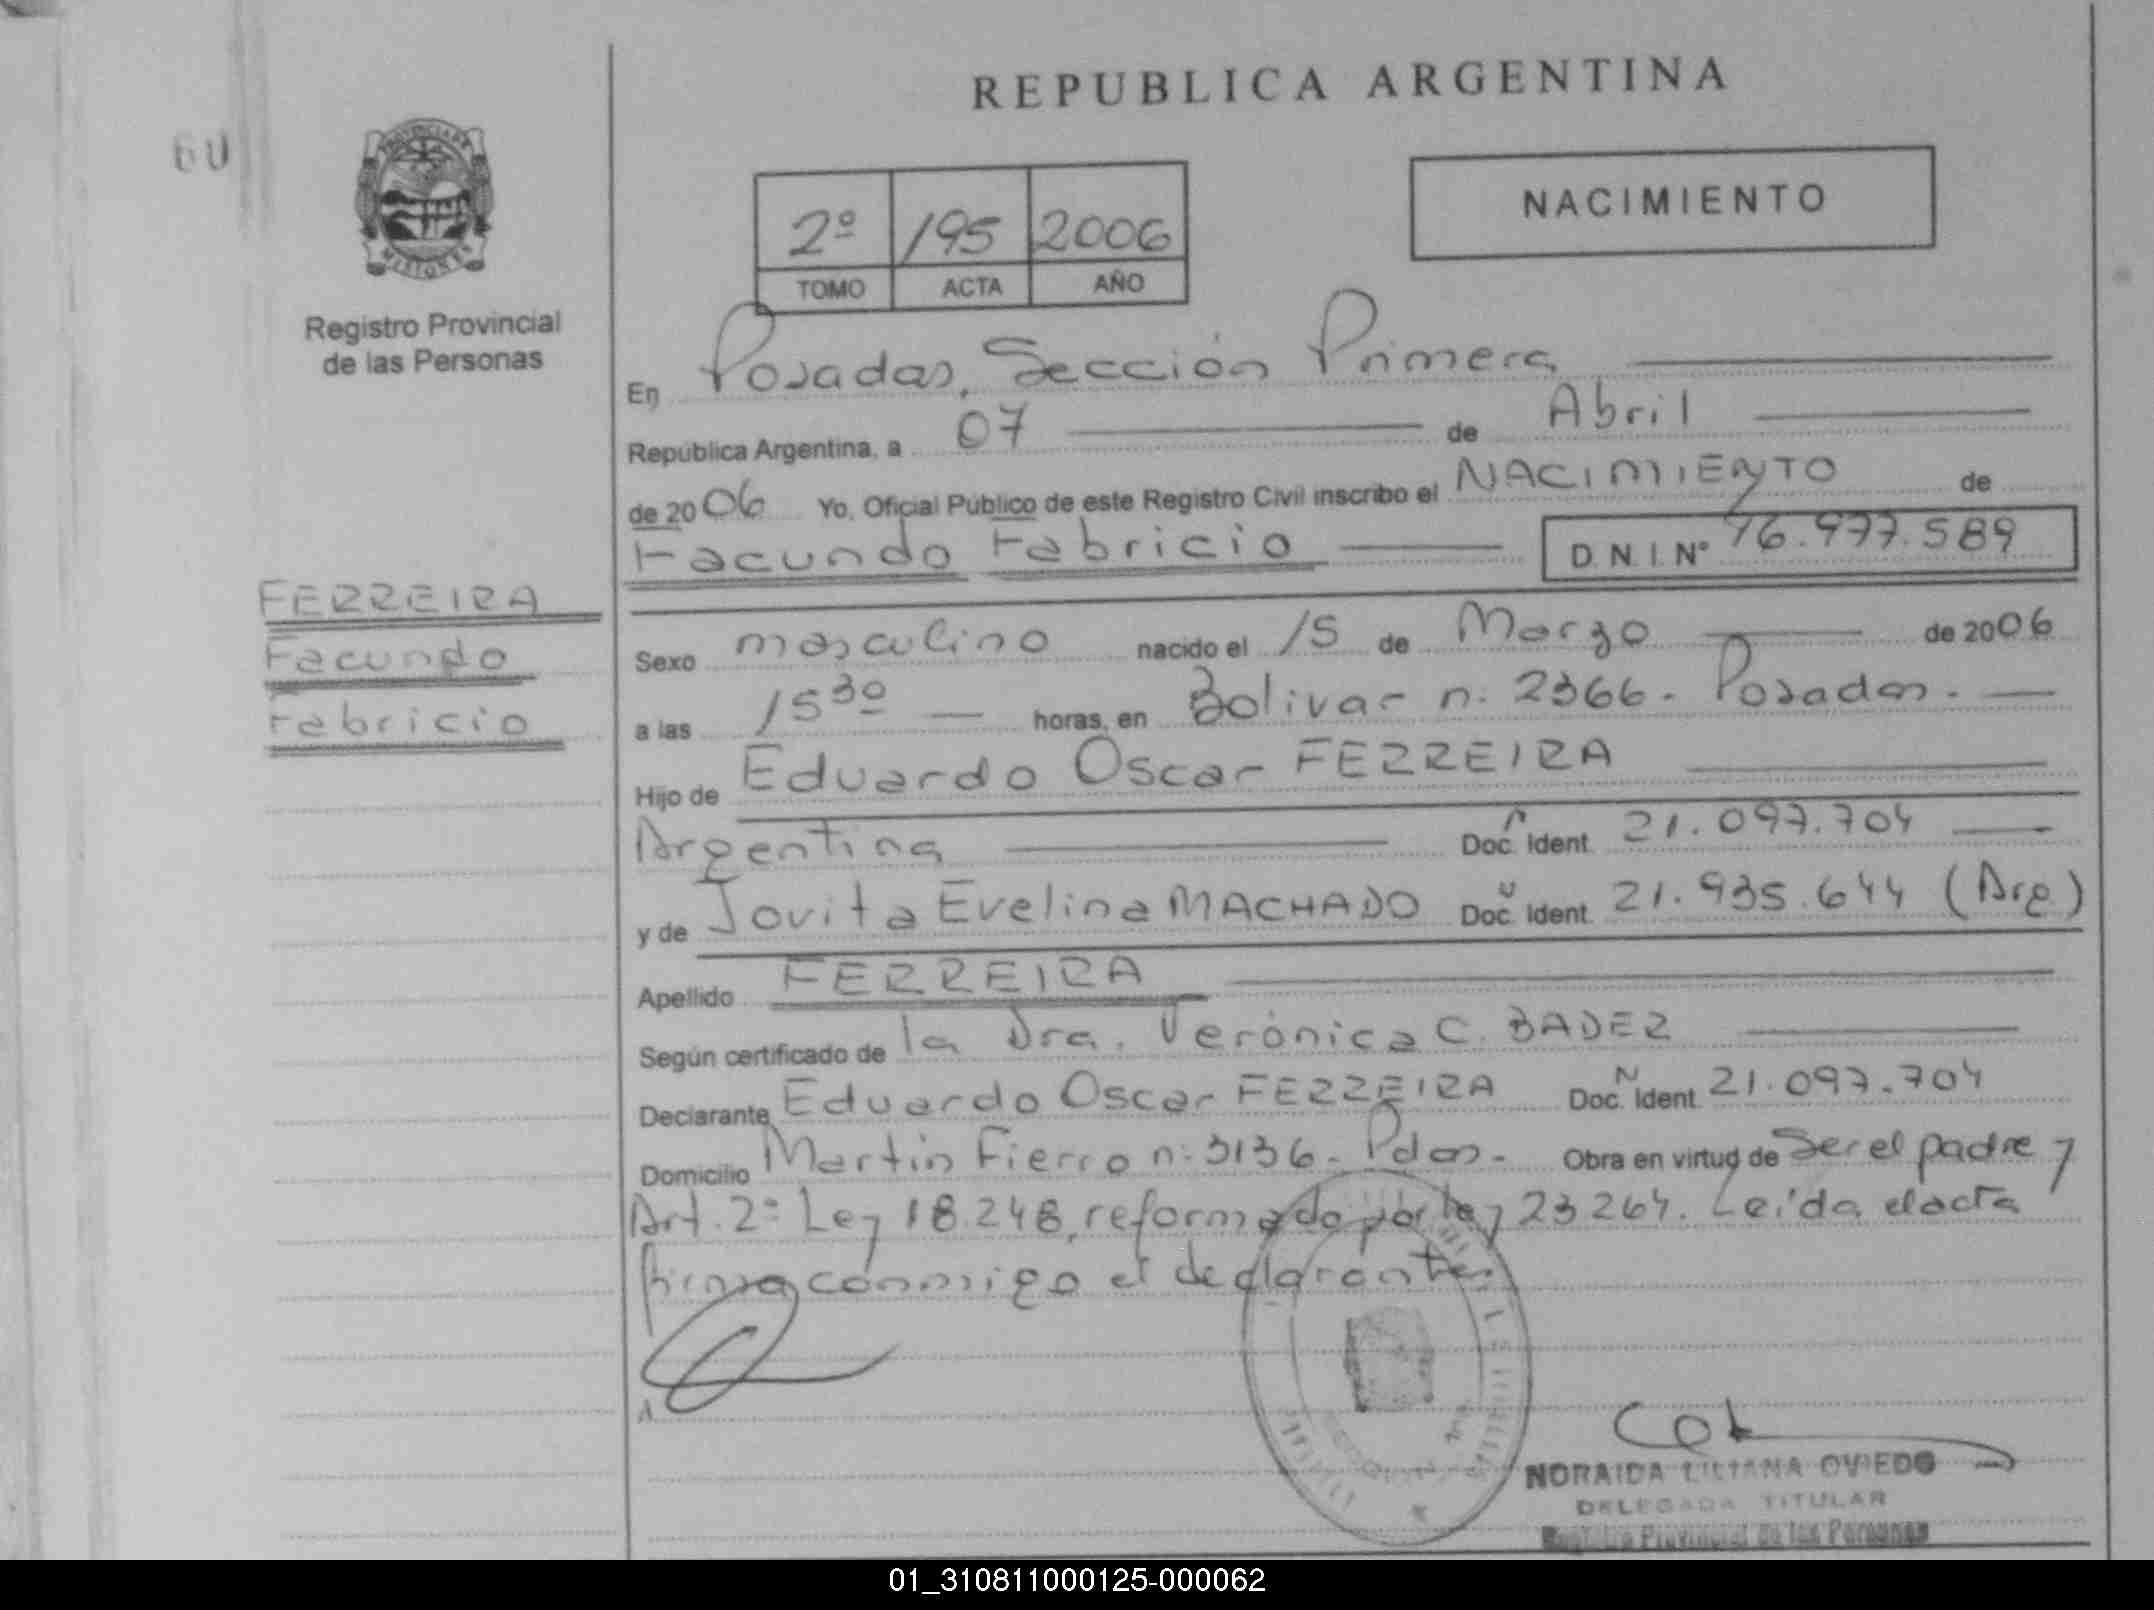 REPUBLICA ARGENTINA
60
PROVINCIA DE
MISIONES
Registro Provincial
de las Personas
2º 195 2006
TOMO ACTA AÑO
NACIMIENTO
En Posadas, Sección Primera
República Argentina, a 07 de Abril
de 2006 Yo, Oficial Público de este Registro Civil inscribo el NACIMIENTO de
Facundo Fabricio D.N.I. Nº 46.977.589
FERREIRA
Facundo
Fabricio
Sexo masculino nacido el 15 de Marzo de 2006
a las 15 30 horas, en Bolivar n: 2366. Posadas.
Hijo de Eduardo Oscar FERREIRA
Argentina Doc. Ident. 21.097.704
y de Jovita Evelina MACHADO Doc. Ident. 21.935.644 (Arg)
Apellido FERREIRA
Según certificado de la Dra. Verónica C. BADER
Declarante Eduardo Oscar FERREIRA Doc. Ident. N 21.097.704
Domicilio Martín Fierro n: 3136. Pdas. Obra en virtud de Ser el padre y
Art. 2º Ley 18.248, reformado por ley 23264. Leída el acta
firma conmigo el declarante.
NORAIDA LILIANA OVIEDO
DELEGADA TITULAR
Registro Provincial de las Personas
01_310811000125-000062